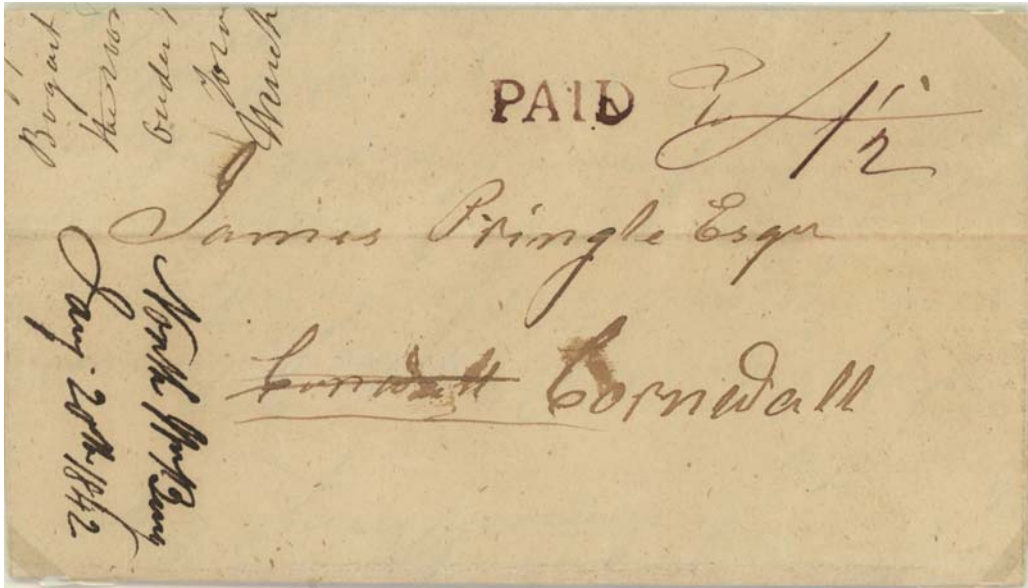 Bogart
under
PAID 1/2
James Pringle Esqr
Cornwall Cornwall
North
Jany 20th 1842